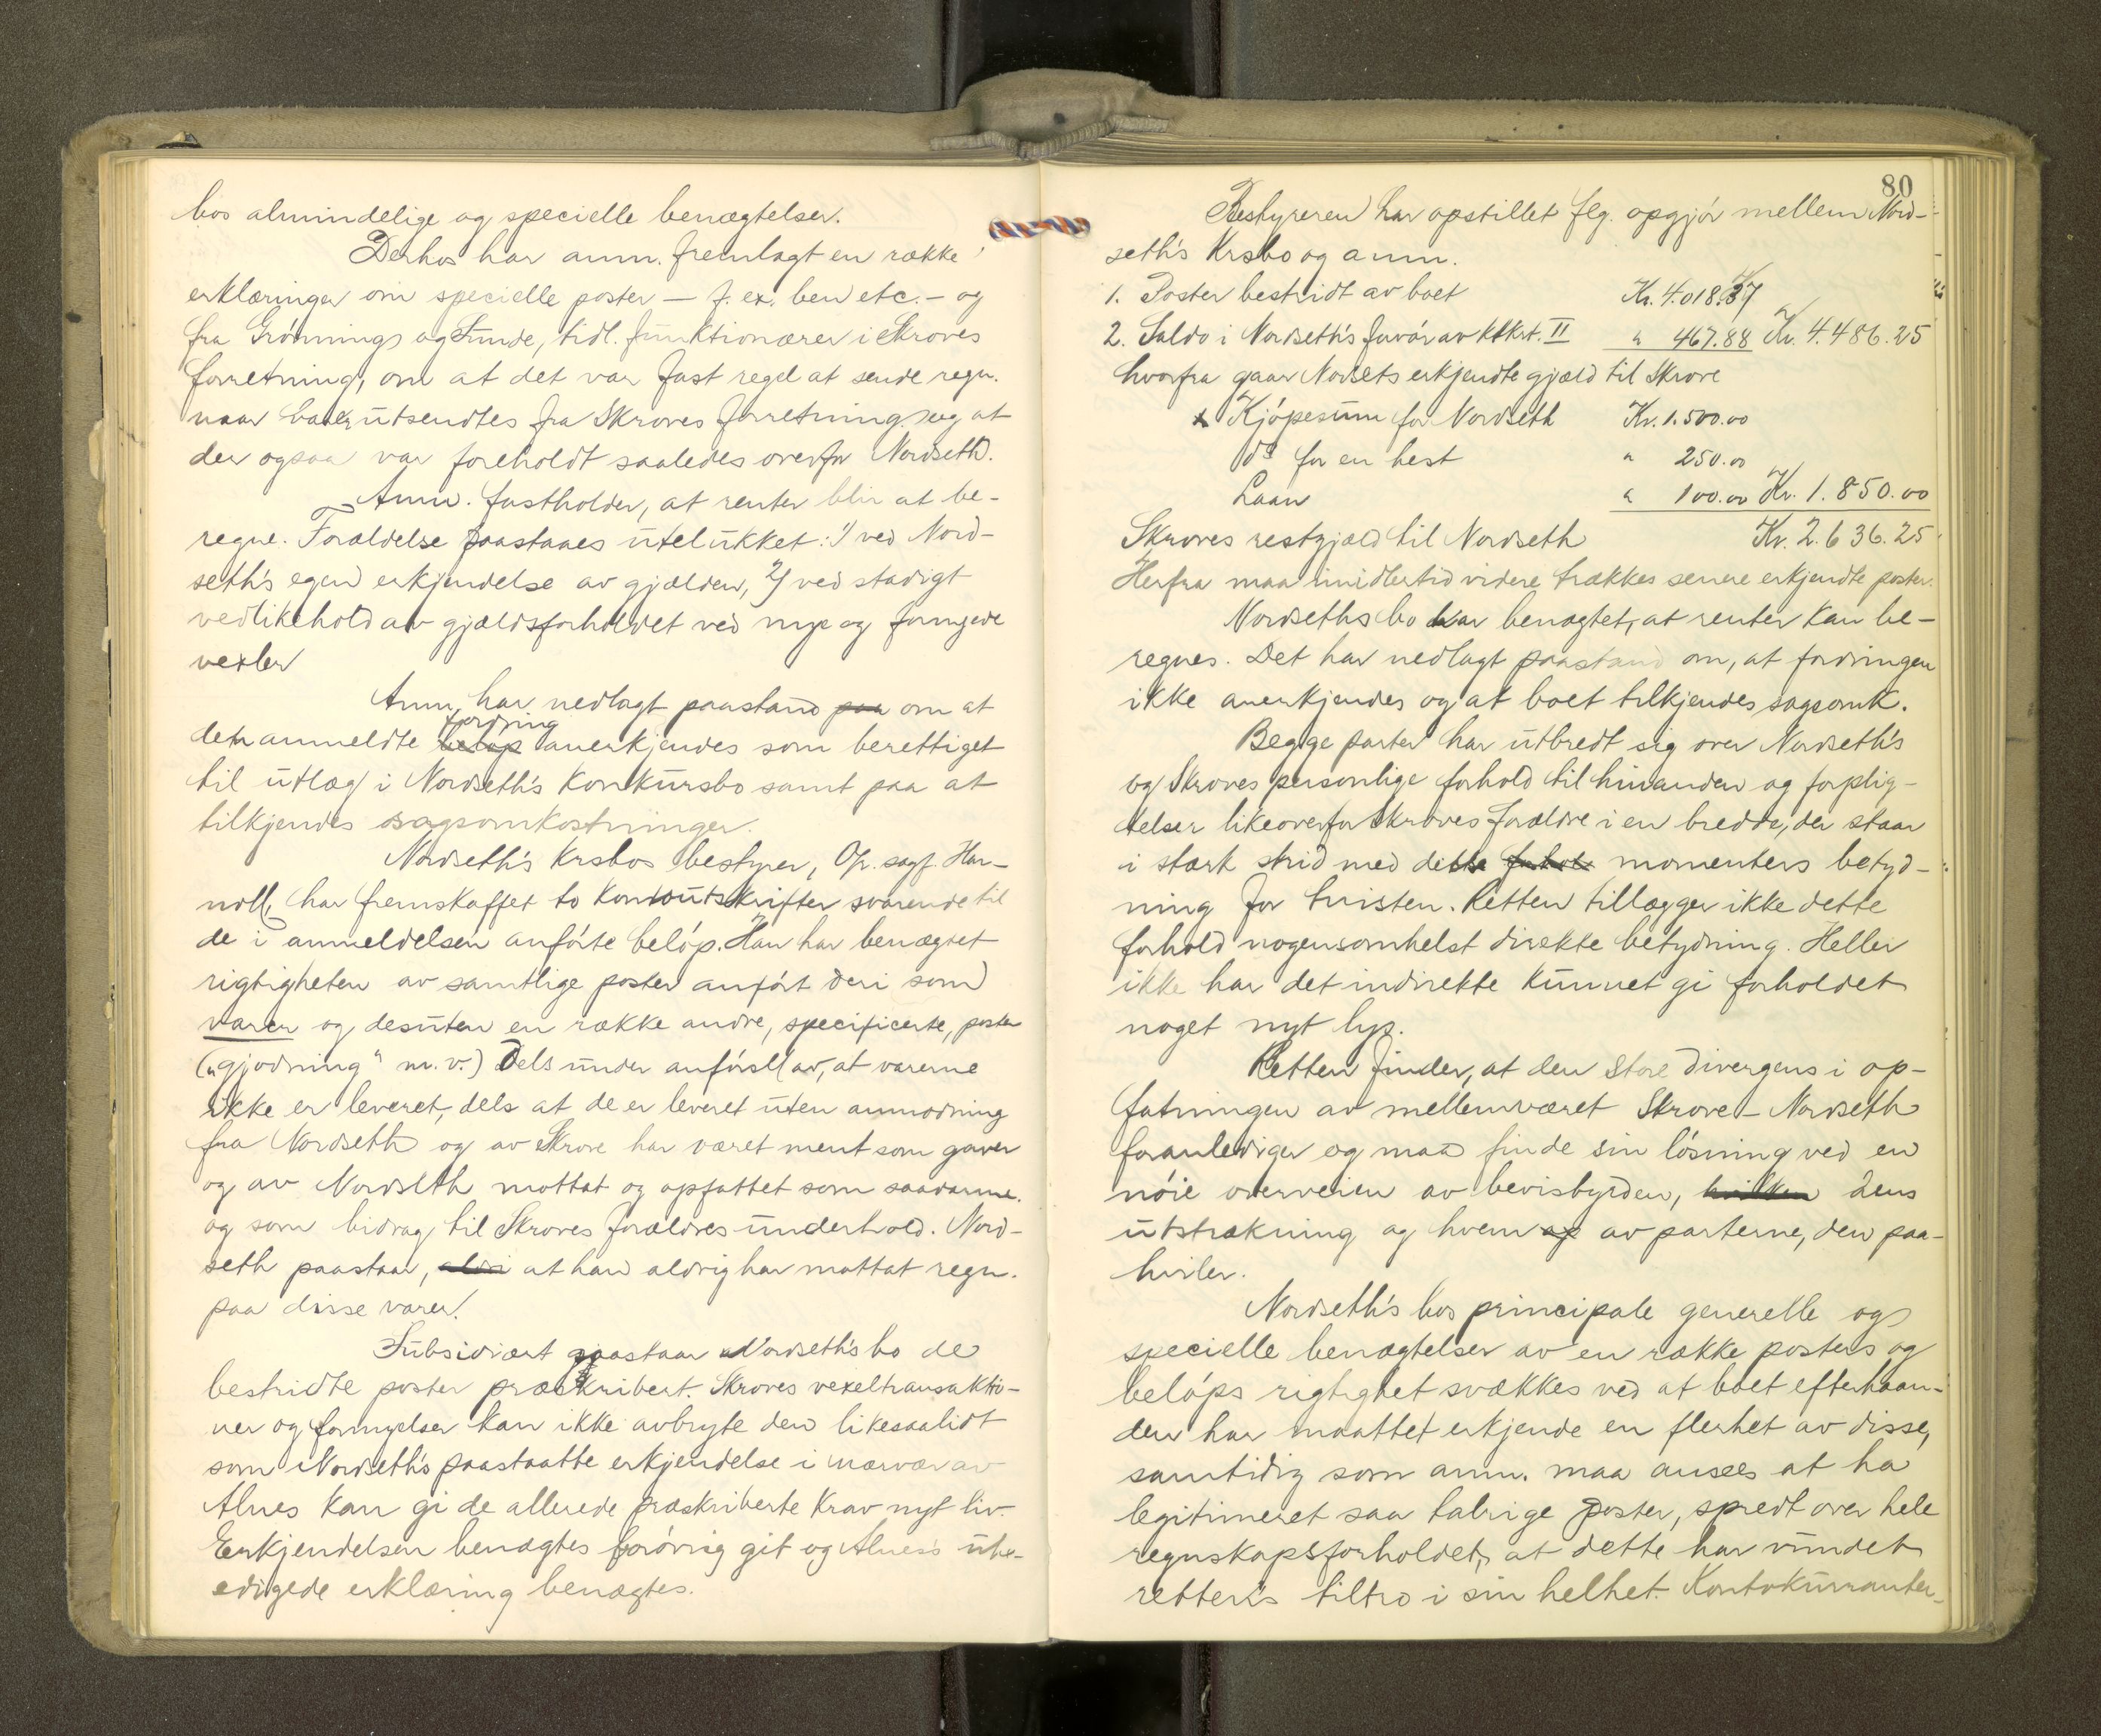 bos almindelige og specielle benægtelser.
Derhos har anm. fremlagt en række
erklæringer om specielle poster – f. ex. ben etc. – og
fra Grønnings og Sunde, tidl. funktionærer i Skroves
forretning, om at det var fast regel at sende regn.
naar varer utsendtes fra Skroves forretning, og at
der ogsaa var foreholdt saaledes overfor Nordseth.
Anm. fastholder, at renter blir at be-
regne. Forældelse paastaaes utelukket: 1) ved Nord-
seth's egen erkjendelse av gjælden, 2) ved stadigt
vedlikehold av gjældsforholdet ved nye og fornyede
vexler
Anm. har nedlagt paastand paa om at
den anmeldte beløp fordring anerkjendes som berettiget
til utlæg i Nordseth's konkursbo samt paa at
tilkjendes sagsomkostninger.
Nordseth's krsbos bestyrer, Op. sagf. Har-
noll, har fremskaffet to kontoutskrifter svarende til
de i anmeldelsen anførte beløp. Han har benægtet
rigtigheten av samtlige poster anført deri som
varer og desuten en række andre, specificerte, poster
("gjødning" m. v.) Dels under anførsel av, at varerne
ikke er leveret, dels at de er leveret uten anmodning
fra Nordseth og av Skrove har været ment som gaver
og av Nordseth mottat og opfattet som saadanne.
og som bidrag til Skroves forældres underhold. Nord-
seth paastaar, aldri at han aldrig har mottat regn.
paa disse varer.
Subsidiært paastaar Nordseth's bo de
bestridte poster præskribert. Skroves vexeltransaktio-
ner og fornyelser kan ikke avbryte den likesaalidt
som Nordseth's paastaatte erkjendelse i nærvær av
Alnes kan gi de allerede præskriberte krav nyt liv.
Erkjendelsen benægtes forøvrig git og Alnes's ube-
edigede erklæring benægtes.
80
Bestyreren har opstillet flg. opgjør mellem Nord-
seth's Krsbo og anm.
1. Poster bestridt av boet Kr. 4.018.37
2. Saldo i Nordseth's favør av ktkrt. II " 467.88 Kr. 4.486.25
hvorfra gaar Nordsets erkjendte gjæld til Skrove
Kjøpesum for Nordseth Kr. 1.500.00
do for en hest " 250.00
Laan " 100.00 Kr. 1.850.00
Skroves restgjæld til Nordseth Kr. 2.636.25
Herfra maa imidlertid videre trækkes senere erkjendte poster.
Nordseths bo har benægtet, at renter kan be-
regnes. Det har nedlagt paastand om, at fordringen
ikke anerkjendes og at boet tilkjendes sagsomk.
Begge parter har utbredt sig over Nordseth's
og Skroves personlige forhold til hinanden og forplig-
telser likeoverfor Skroves forældre i en bredde, der staar
i stærk strid med dette momenters betyd-
ning for tvisten. Retten tillægger ikke dette
forhold nogensomhelst direkte betydning. Heller
ikke har det indirekte kunnet gi forholdet
noget nyt lys.
Retten finder, at den store divergens i op-
fatningen av mellemværet Skrove – Nordseth
foranlediger og maa finde sin løsning ved en
nøie overveien av bevisbyrden, hvilken dens
utstrækning og hvem av parterne, den paa-
hviler.
Nordseth's bos principale generelle og
specielle benægtelser av en række posters og
beløps rigtighet svækkes ved at boet efterhaan-
den har maattet erkjende en flerhet av disse,
samtidig som anm. maa ansees at ha
legitimeret saa talrige poster, spredt over hele
regnskapsforholdet, at dette har vundet
retten's tiltro i sin helhet. Kontokuranter-